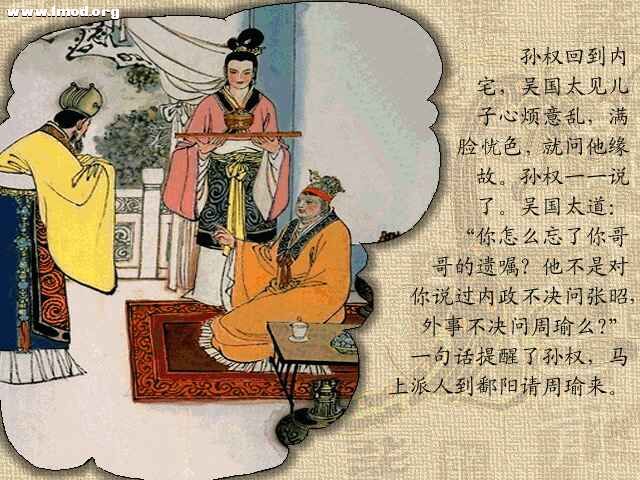 www.lmod.org
孙权回到内
宅，吴国太见儿
子心烦意乱，满
脸忧色，就问他缘
故。孙权一一说
了。吴国太道：
“你怎么忘了你哥
哥的遗嘱？他不是对
你说过内政不决问张昭，
外事不决问周瑜么？”
一句话提醒了孙权，马
上派人到鄱阳请周瑜来。